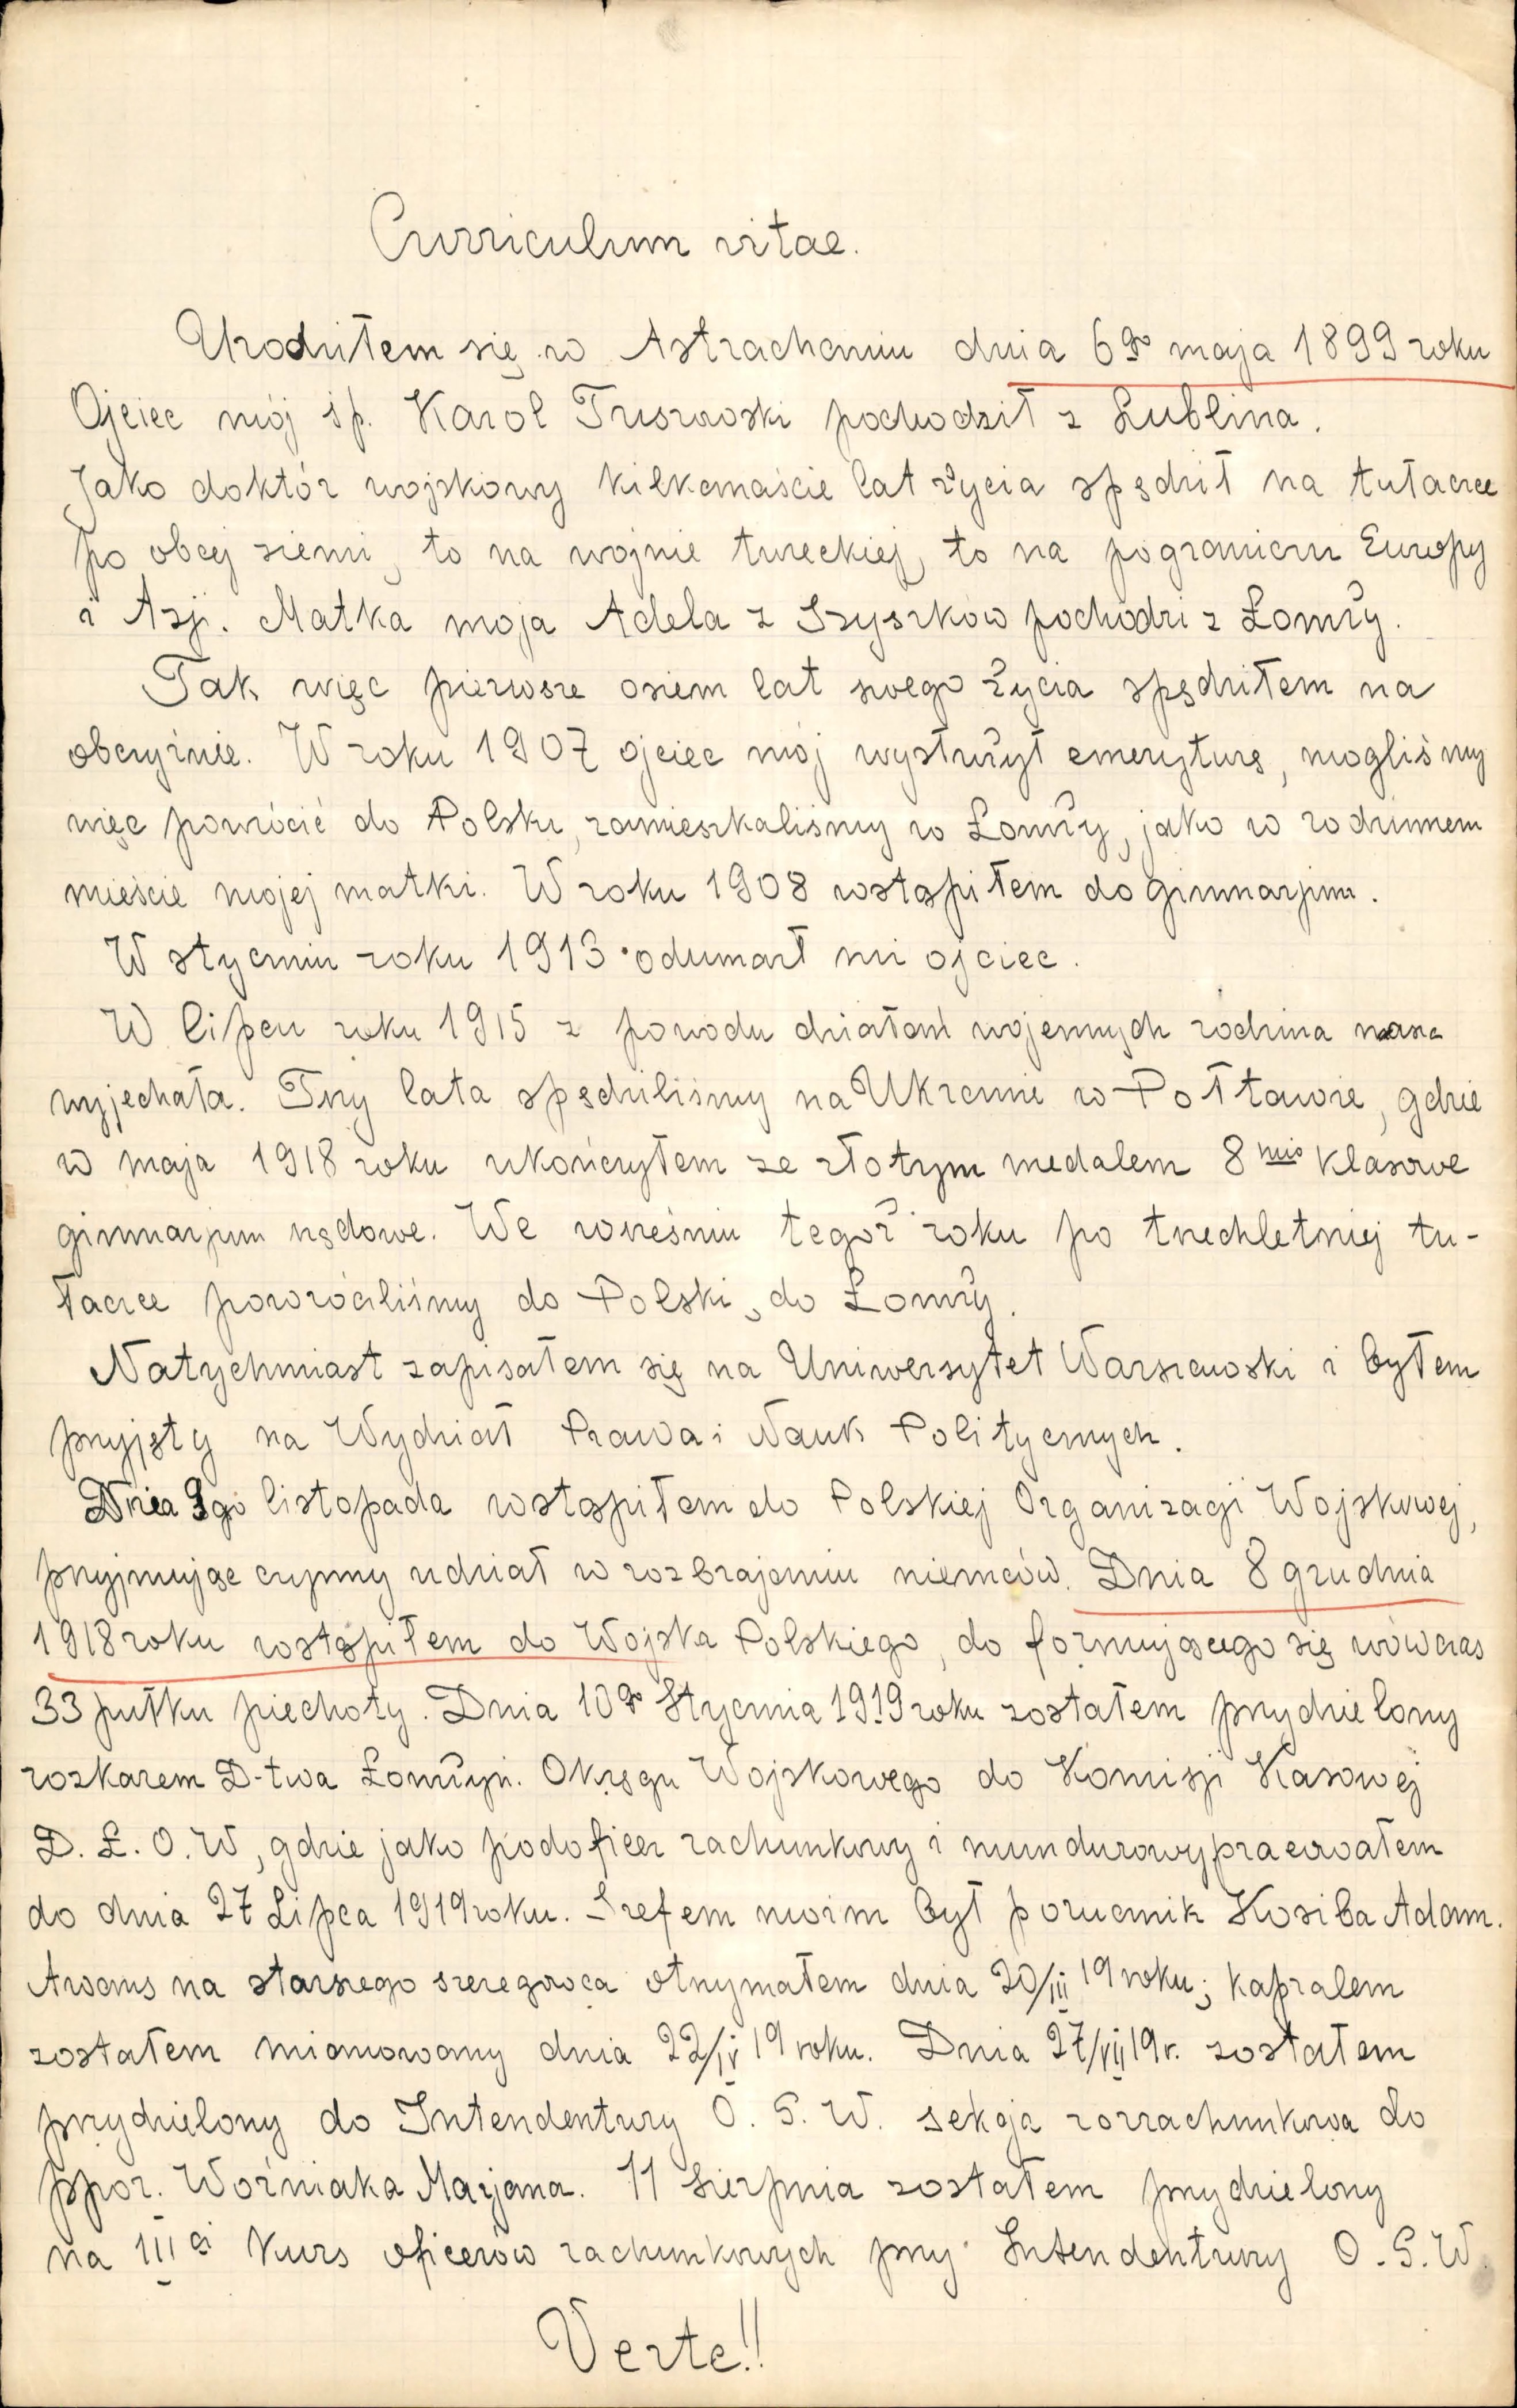 Curriculum vitae.
Urodziłem się w Astrachaniu dnia 6go maja 1899 roku
Ojciec mój śp. Karol Truszkowski pochodził z Lublina.
Jako doktór wojskowy kilkanaście lat życia spędził na tułaczce
po obcej ziemi, to na wojnie tureckiej, to na pograniczu Europy
i Azji. Matka moja Adela z Szyszków pochodzi z Łomży.
Tak więc pierwsze osiem lat swego życia spędziłem na
obczyźnie. W roku 1907 ojciec mój wysłużył emeryturę, mogliśmy
więc powrócić do Polski, zamieszkaliśmy w Łomży, jako w rodzinnem
mieście mojej matki. W roku 1908 wstąpiłem do gimnazjum.
W styczniu roku 1913 odumarł mi ojciec.
W lipcu roku 1915 z powodu działań wojennych rodzina nasza
wyjechała. Trzy lata spędziliśmy na Ukrainie w Połtawie, gdzie
w maja 1918 roku ukończyłem ze złotym medalem 8mio klasowe
gimnazjum rządowe. We wrześniu tegoż roku po trzechletniej tu-
łaczce powróciliśmy do Polski, do Łomży.
Natychmiast zapisałem się na Uniwersytet Warszawski i byłem
przyjęty na Wydział Prawa i Nauk Politycznych.
Dnia 9go listopada wstąpiłem do Polskiej Organizacji Wojskowej,
przyjmując czynny udział w rozbrajaniu niemców. Dnia 8 grudnia
1918 roku wstąpiłem do Wojska Polskiego, do formującego się wówczas
33 pułku piechoty. Dnia 10go Stycznia 1919 roku zostałem przydzielony
rozkazem D-twa Łomżyń. Okręgu Wojskowego do Komisji Kasowej
D. Ł. O. W, gdzie jako podoficer rachunkowy i mundurowy pracowałem
do dnia 27 Lipca 1919 roku. Szefem moim był porucznik Kosiba Adam.
Awans na starszego szeregowca otrzymałem dnia 20/III 19 roku; kapralem
zostałem mianowany dnia 22/IV 19 roku. Dnia 27/VII 19 r. zostałem
przydzielony do Intendentury O. G. W. sekcja rozrachunkowa do
ppor. Woźniaka Marjana. 11 Sierpnia zostałem przydzielony
na III ci Kurs oficerów rachunkowych przy Intendentury O. G. W.
Verte!!